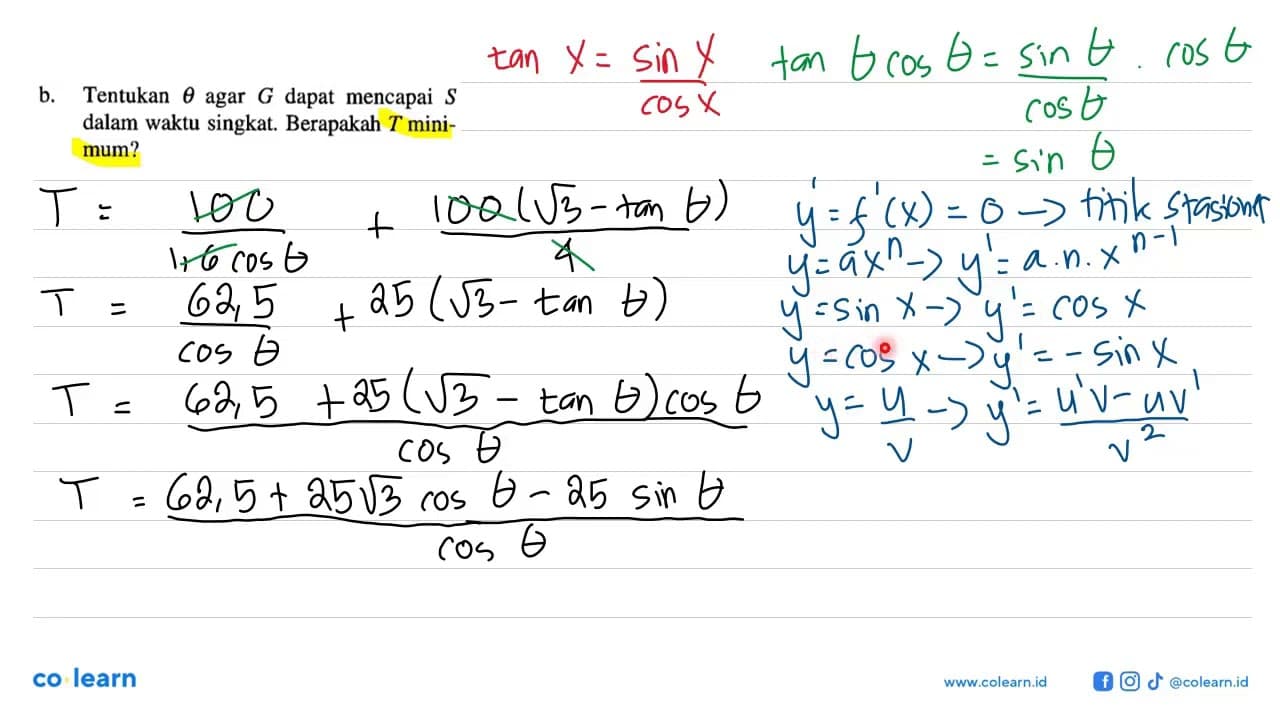 b. Tentukan θ agar G dapat mencapai S
dalam waktu singkat. Berapakah T mini-
mum?
tan x = sin x / cos x
tan θ cos θ = sin θ / cos θ . cos θ
= sin θ
T = 100 / 1,6 cos θ + 100 (√3 - tan θ) / 4
T = 62,5 / cos θ + 25 (√3 - tan θ)
T = 62,5 + 25 (√3 - tan θ) cos θ / cos θ
T = 62,5 + 25√3 cos θ - 25 sin θ / cos θ
y' = f'(x) = 0 → titik stasioner
y = ax^n → y' = a.n.x^n-1
y = sin x → y' = cos x
y = cos x → y' = - sin x
y = u / v → y' = u'v - uv' / v²
co·learn
www.colearn.id
@colearn.id